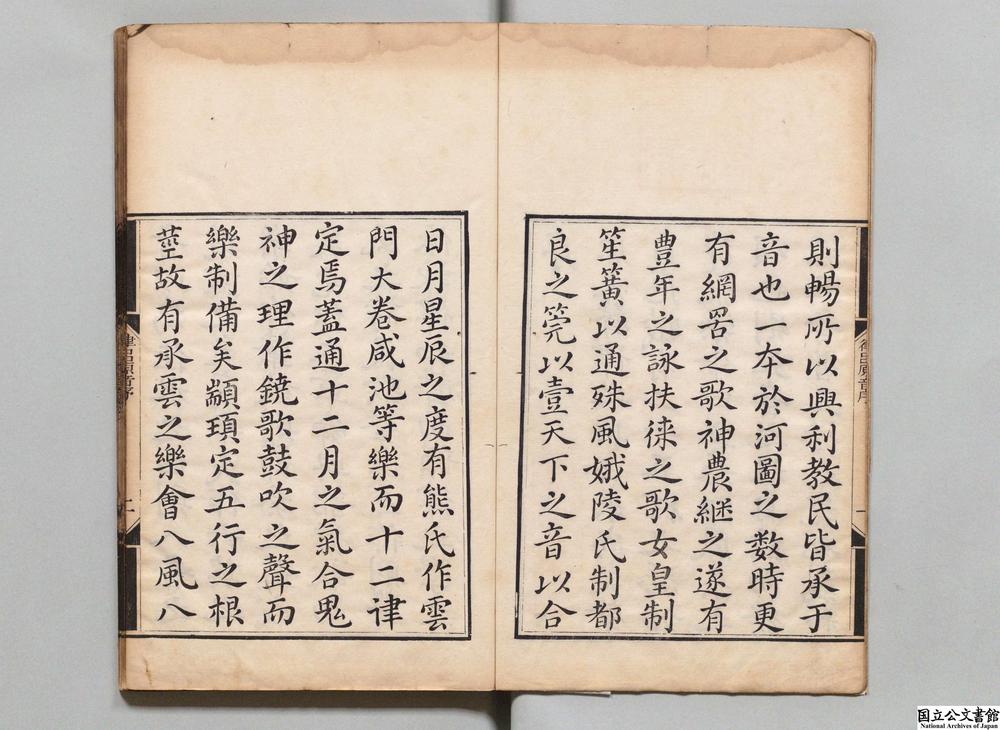 則暢所以興利教民皆承于
音也一夲於河圖之数時更
有網罟之歌神農継之遂有
豊年之詠扶徠之歌女皇制
笙簧以通殊風娥陵氏制都
良之筦以壹天下之音以合
日月星辰之度有熊氏作雲
門大卷咸池等樂而十二律
定焉蓋通十二月之氣合鬼
神之理作鐃歌鼓吹之聲而
樂制備矣顓頊定五行之根
莖故有承雲之樂會八風八
律呂原音序
一
律呂原音序
二
国立公文書館
National Archives of Japan